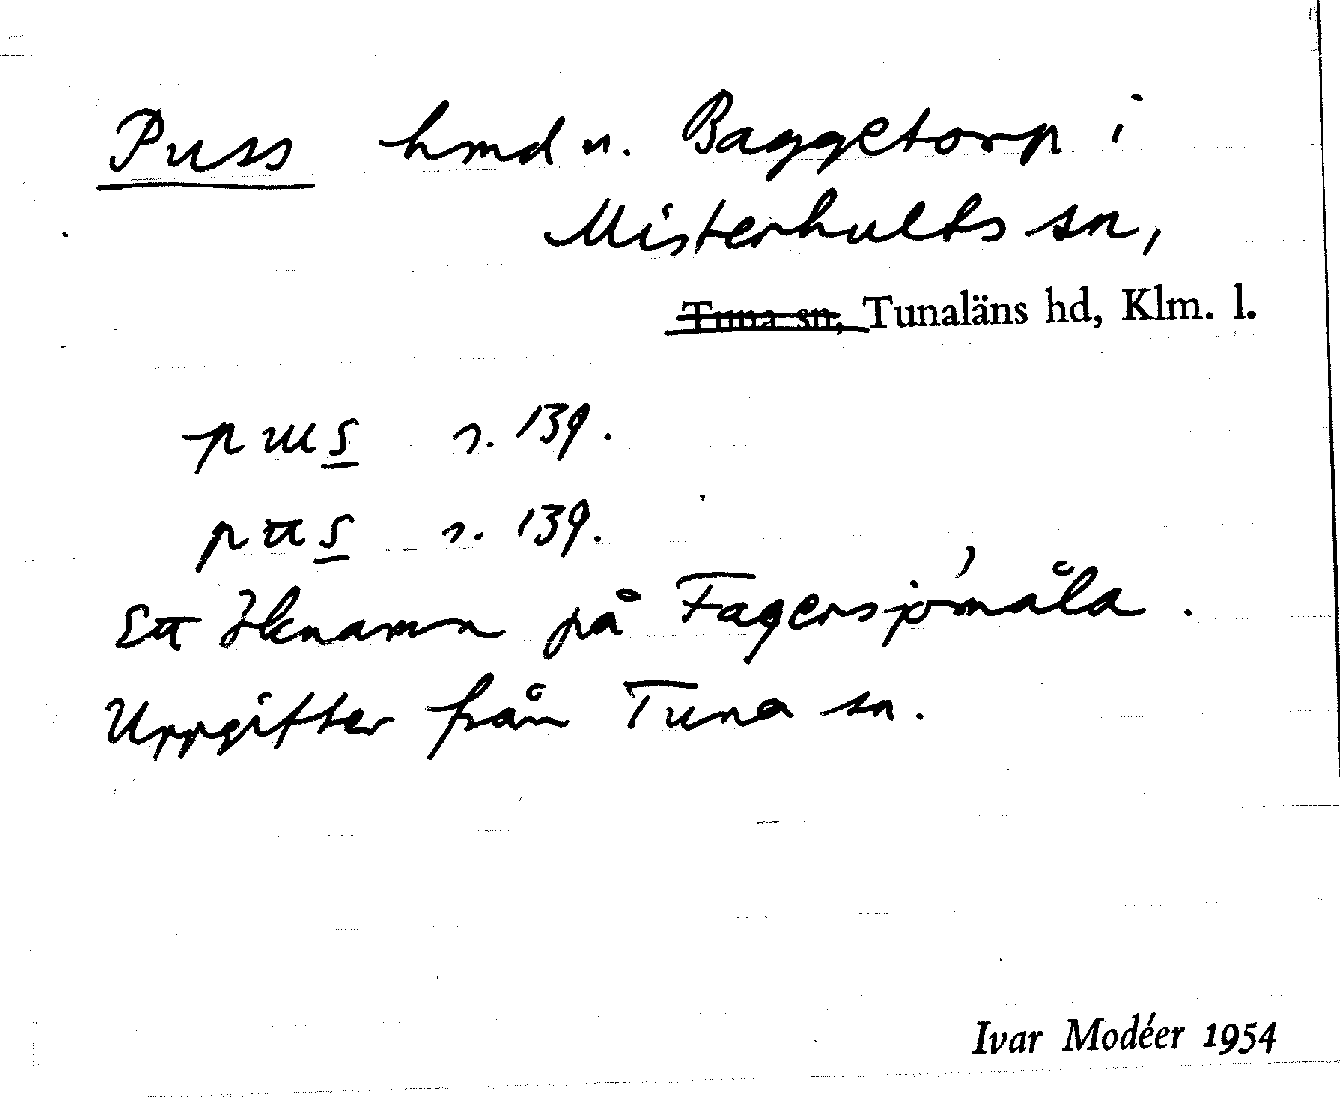 Puss hmd u. Baggetorp i
Misterhults sn,
Tuna sn, Tunaläns hd, Klm. l.
s. 139.
s. 139.
Ett öknamn på Fagersjömåla.
Uppgifter från Tuna sn.
Ivar Modéer 1954